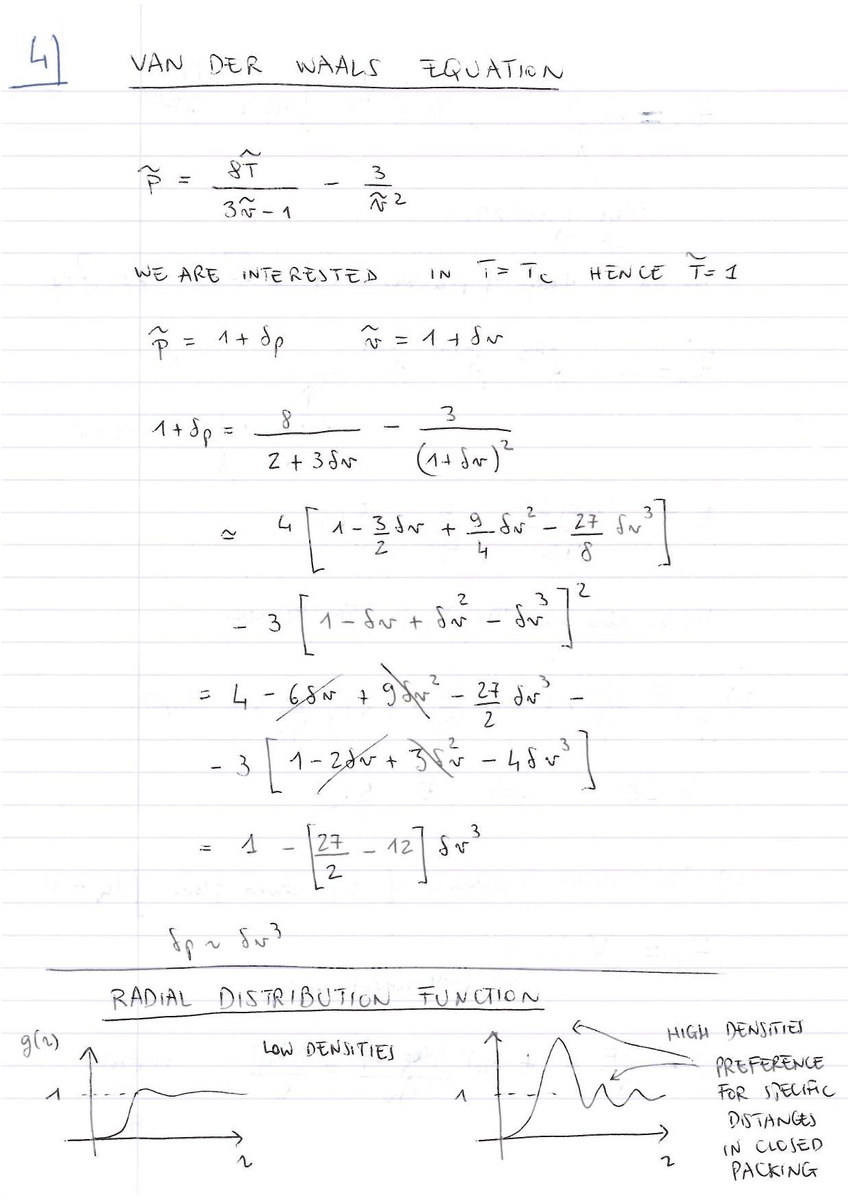 4)
VAN DER WAALS EQUATION
p̃ = 8T̃ / (3ṽ - 1) - 3 / ṽ²
WE ARE INTERESTED IN T = Tc HENCE T̃ = 1
p̃ = 1 + δp ṽ = 1 + δv
1 + δp = 8 / (2 + 3δv) - 3 / (1 + δv)²
≃ 4 [ 1 - 3/2 δv + 9/4 δv² - 27/8 δv³ ]
- 3 [ 1 - δv + δv² - δv³ ]²
= 4 - 6δv + 9δv² - 27/2 δv³ -
- 3 [ 1 - 2δv + 3δv² - 4δv³ ]
= 1 - [ 27/2 - 12 ] δv³
δp ~ δv³
RADIAL DISTRIBUTION FUNCTION
g(r)
LOW DENSITIES
1
r
HIGH DENSITIES
PREFERENCE
FOR SPECIFIC
DISTANCES
IN CLOSED
PACKING
1
r